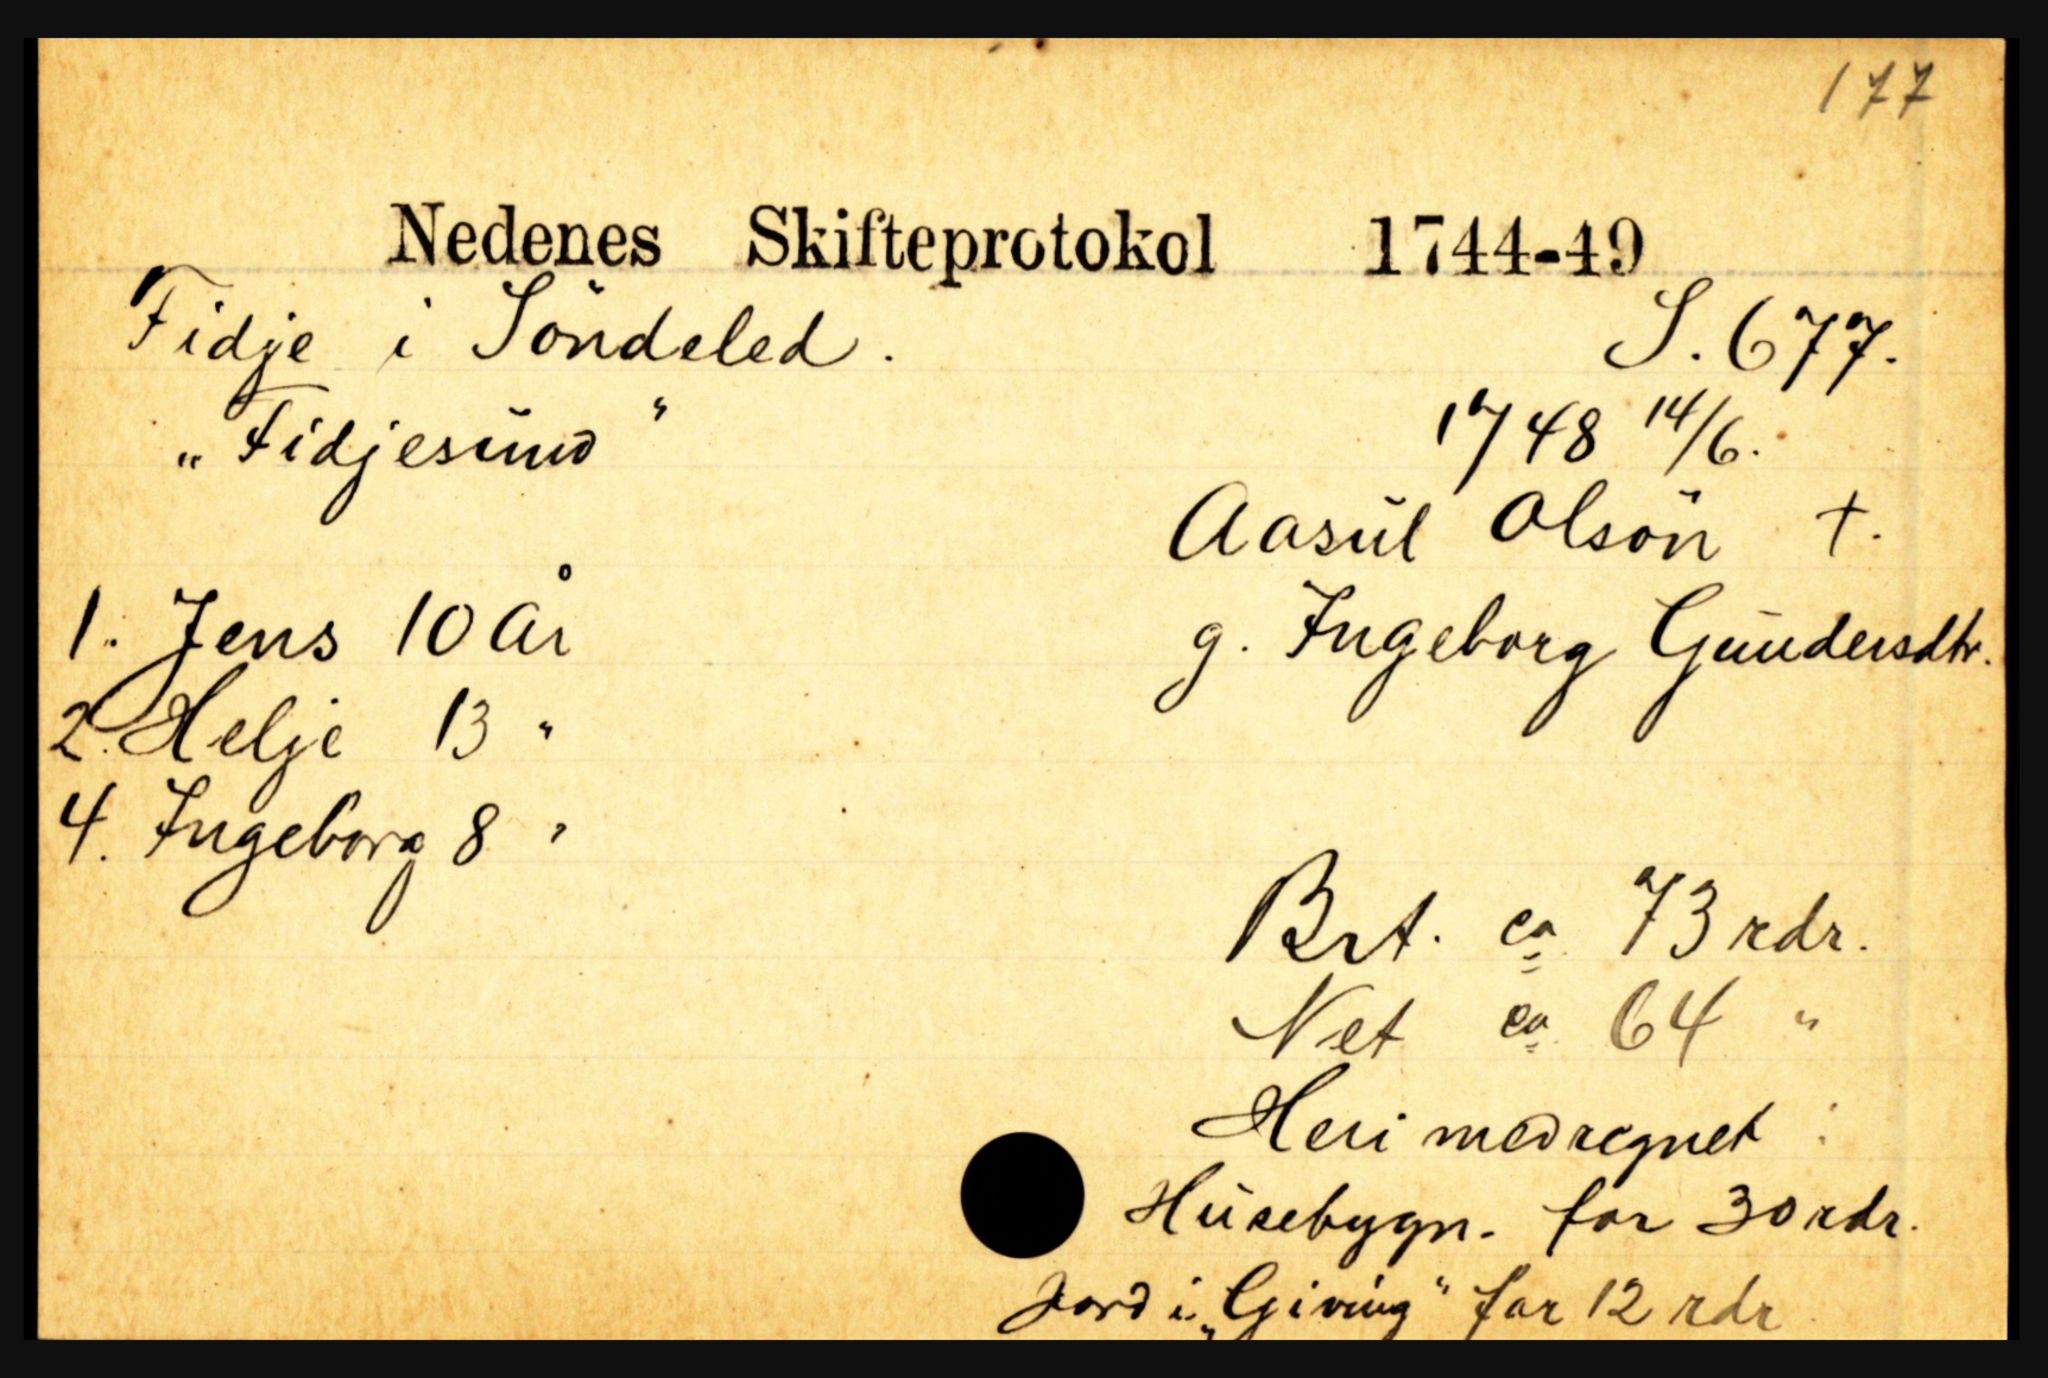 177
Nedenes Skifteprotokol 1744-49
Fidje i Söndeled. S. 677.
„Fidjesund" 1748 14/6.
Aasul Olsön †.
1. Jens 10 år g. Ingeborg Gundersdtr.
2. Helje 13 "
4. Ingeborg 8 "
Brt. ca 73 rdr.
Net ca 64 "
Heri medregnet :
Husebygn. for 30 rdr.
Jord i „Giving" for 12 rdr